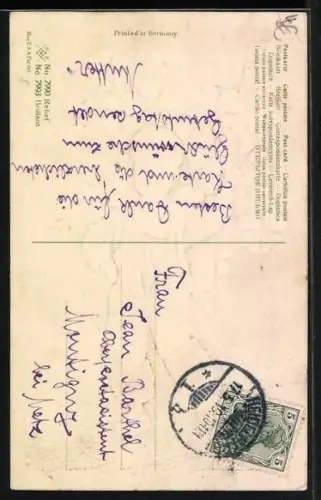 Printed in Germany
Postkarte — Carte postale — Post card — Cartolina postale
Briefkaart — Brefkort — Correspondenzkarte — Dopisnica
Dopisnice — Karta korespondencyjna — Levelező-Lap
Tarjeta postal — Cartão postal — ОТКРЫТОЕ ПИСЬМО
No 7990 Relief
No 7993 Brillant
Besten Dank für die
Karte und die herzlichsten
Glückwünsche zum
Geburtstag sendet
Mutter
Frau
Jean Barthel
Montigny
bei Metz
5
5